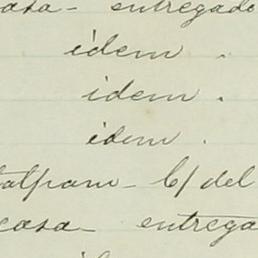 casa - entregado
idem .
idem .
idem .
Tlalpam - C/ del
casa entrega